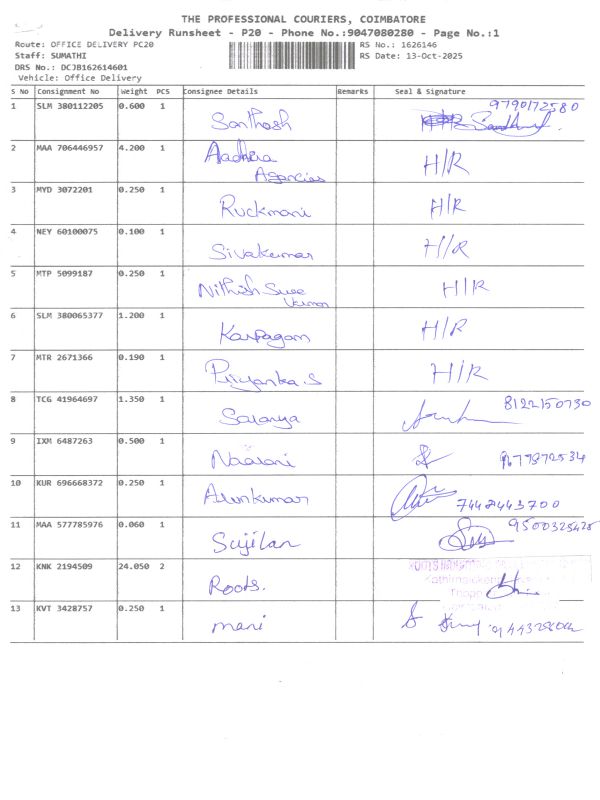 THE PROFESSIONAL COURIERS, COIMBATORE
Delivery Runsheet - P20 - Phone No.:9047080280 - Page No.:1
Route: OFFICE DELIVERY PC20
RS No.: 1626146
Staff: SUMATHI
RS Date: 13-Oct-2025
DRS No.: DCJB162614601
Vehicle: Office Delivery
S No Consignment No Weight PCS Consignee Details Remarks Seal & Signature
1 SLM 380112205 0.600 1 Santhosh 9790172580
2 MAA 706446957 4.200 1 Aadhira H/R
Agencies
3 MYD 3072201 0.250 1 Ruckmani H/R
4 NEY 60100075 0.100 1 Sivakumar H/R
5 MTP 5099187 0.250 1 Nithish Sree H/R
6 SLM 380065377 1.200 1 Karpagam H/R
7 MTR 2671366 0.190 1 Priyanka S H/R
8 TCG 41964697 1.350 1 Saranya 8122150730
9 IXM 6487263 0.500 1 9677872534
10 KUR 696668372 0.250 1 Arunkumar 7448443700
11 MAA 577785976 0.060 1 Sujilan 9500325428
12 KNK 2194509 24.050 2 Roots.
13 KVT 3428757 0.250 1 mani